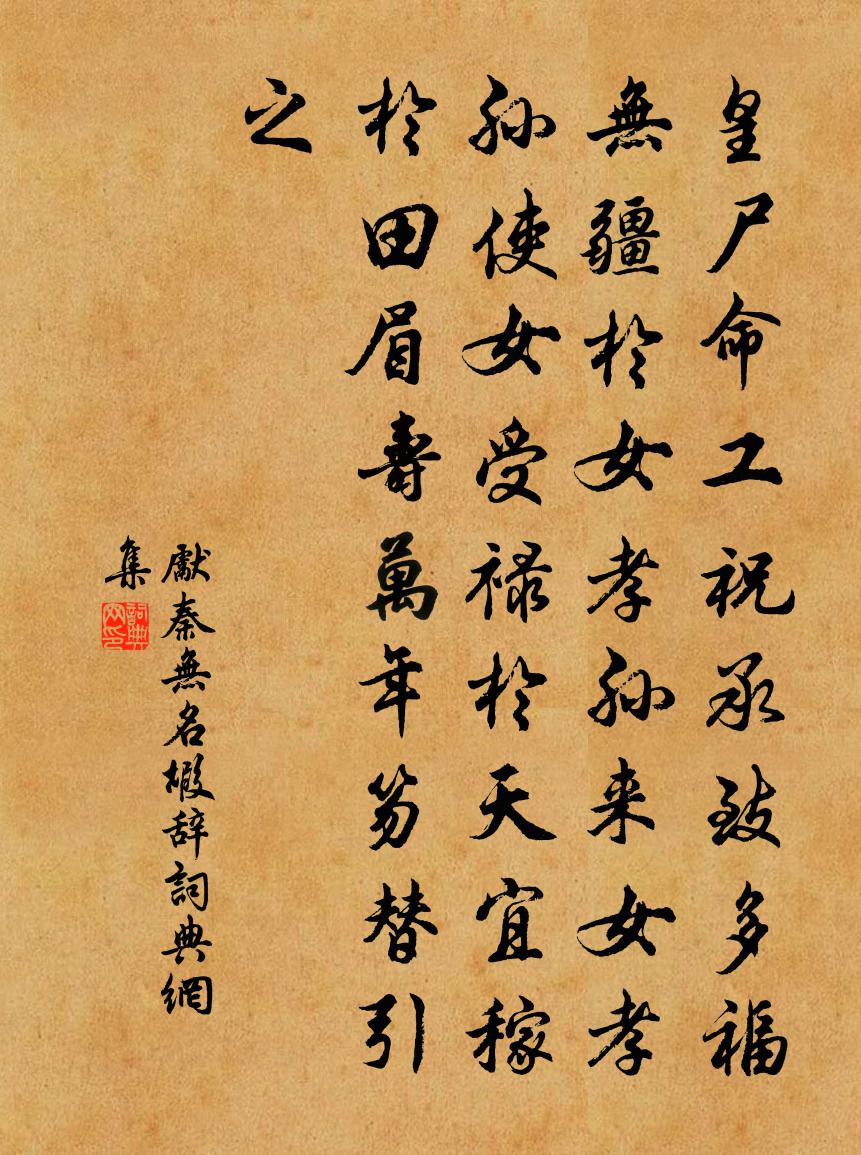 皇尸命工祝承致多福
無疆於女孝孫来女孝
孫使女受禄於天宜稼
於田眉壽萬年勿替引
之
獻秦無名嘏辞詞典網
集
詞典網印